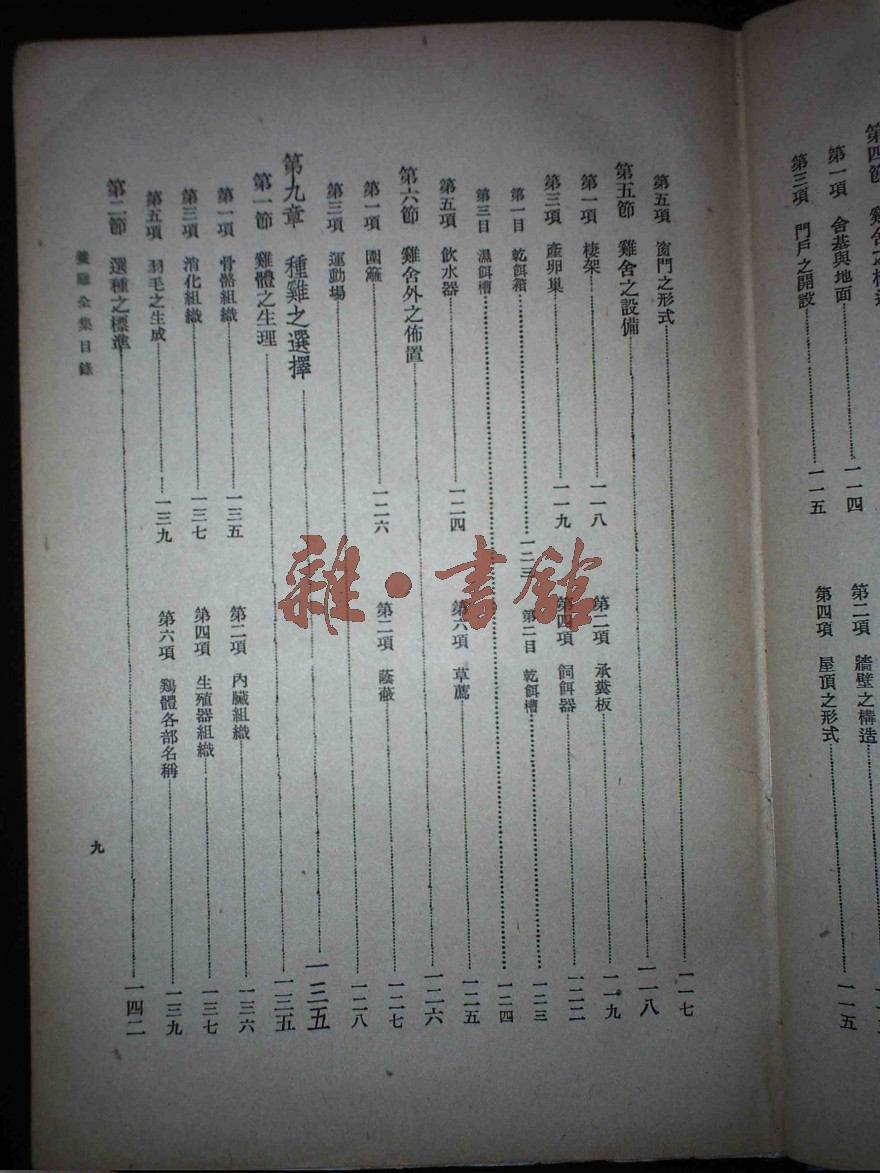 第一項 舍基與地面……一一四 第二項 牆壁之構造
第三項 門戶之開設……一一五 第四項 屋頂之形式……一一五
第五項 窗門之形式……一一七
第五節 雞舍之設備……一一八
第一項 棲架……一一八 第二項 承糞板……一一九
第三項 產卵巢……一一九 第四項 飼餌器……一二二
第一目 乾餌箱……一二三 第二目 乾餌槽……一二三
第三目 濕餌槽……一二四
第五項 飲水器……一二四 第六項 草薦……一二五
第六節 雞舍外之佈置……一二六
第一項 圍籬……一二六 第二項 蔭蔽……一二七
第三項 運動場……一二八
第九章 種雞之選擇……一三五
第一節 雞體之生理……一三五
第一項 骨骼組織……一三五 第二項 內臟組織……一三六
第三項 消化組織……一三七 第四項 生殖器組織……一三七
第五項 羽毛之生成……一三九 第六項 鷄體各部名稱……一三九
第二節 選種之標準……一四二
養雞全集目錄 九
雜·書舘